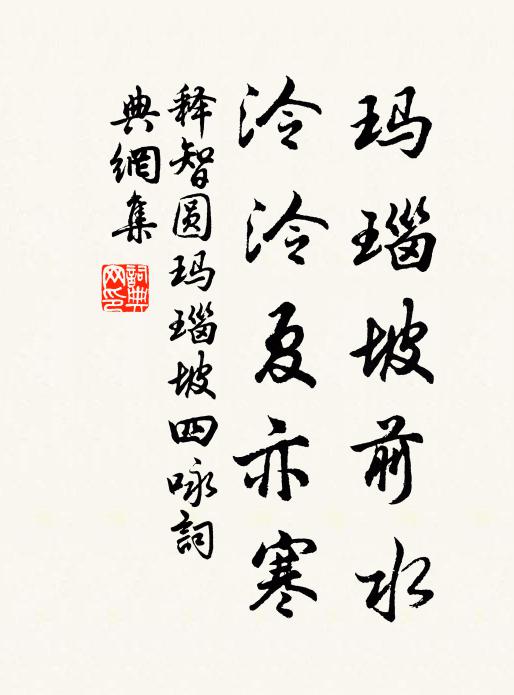 玛瑙坡前水
泠泠夏亦寒
释智圆玛瑙坡四咏詞
典網集
詞典
网印